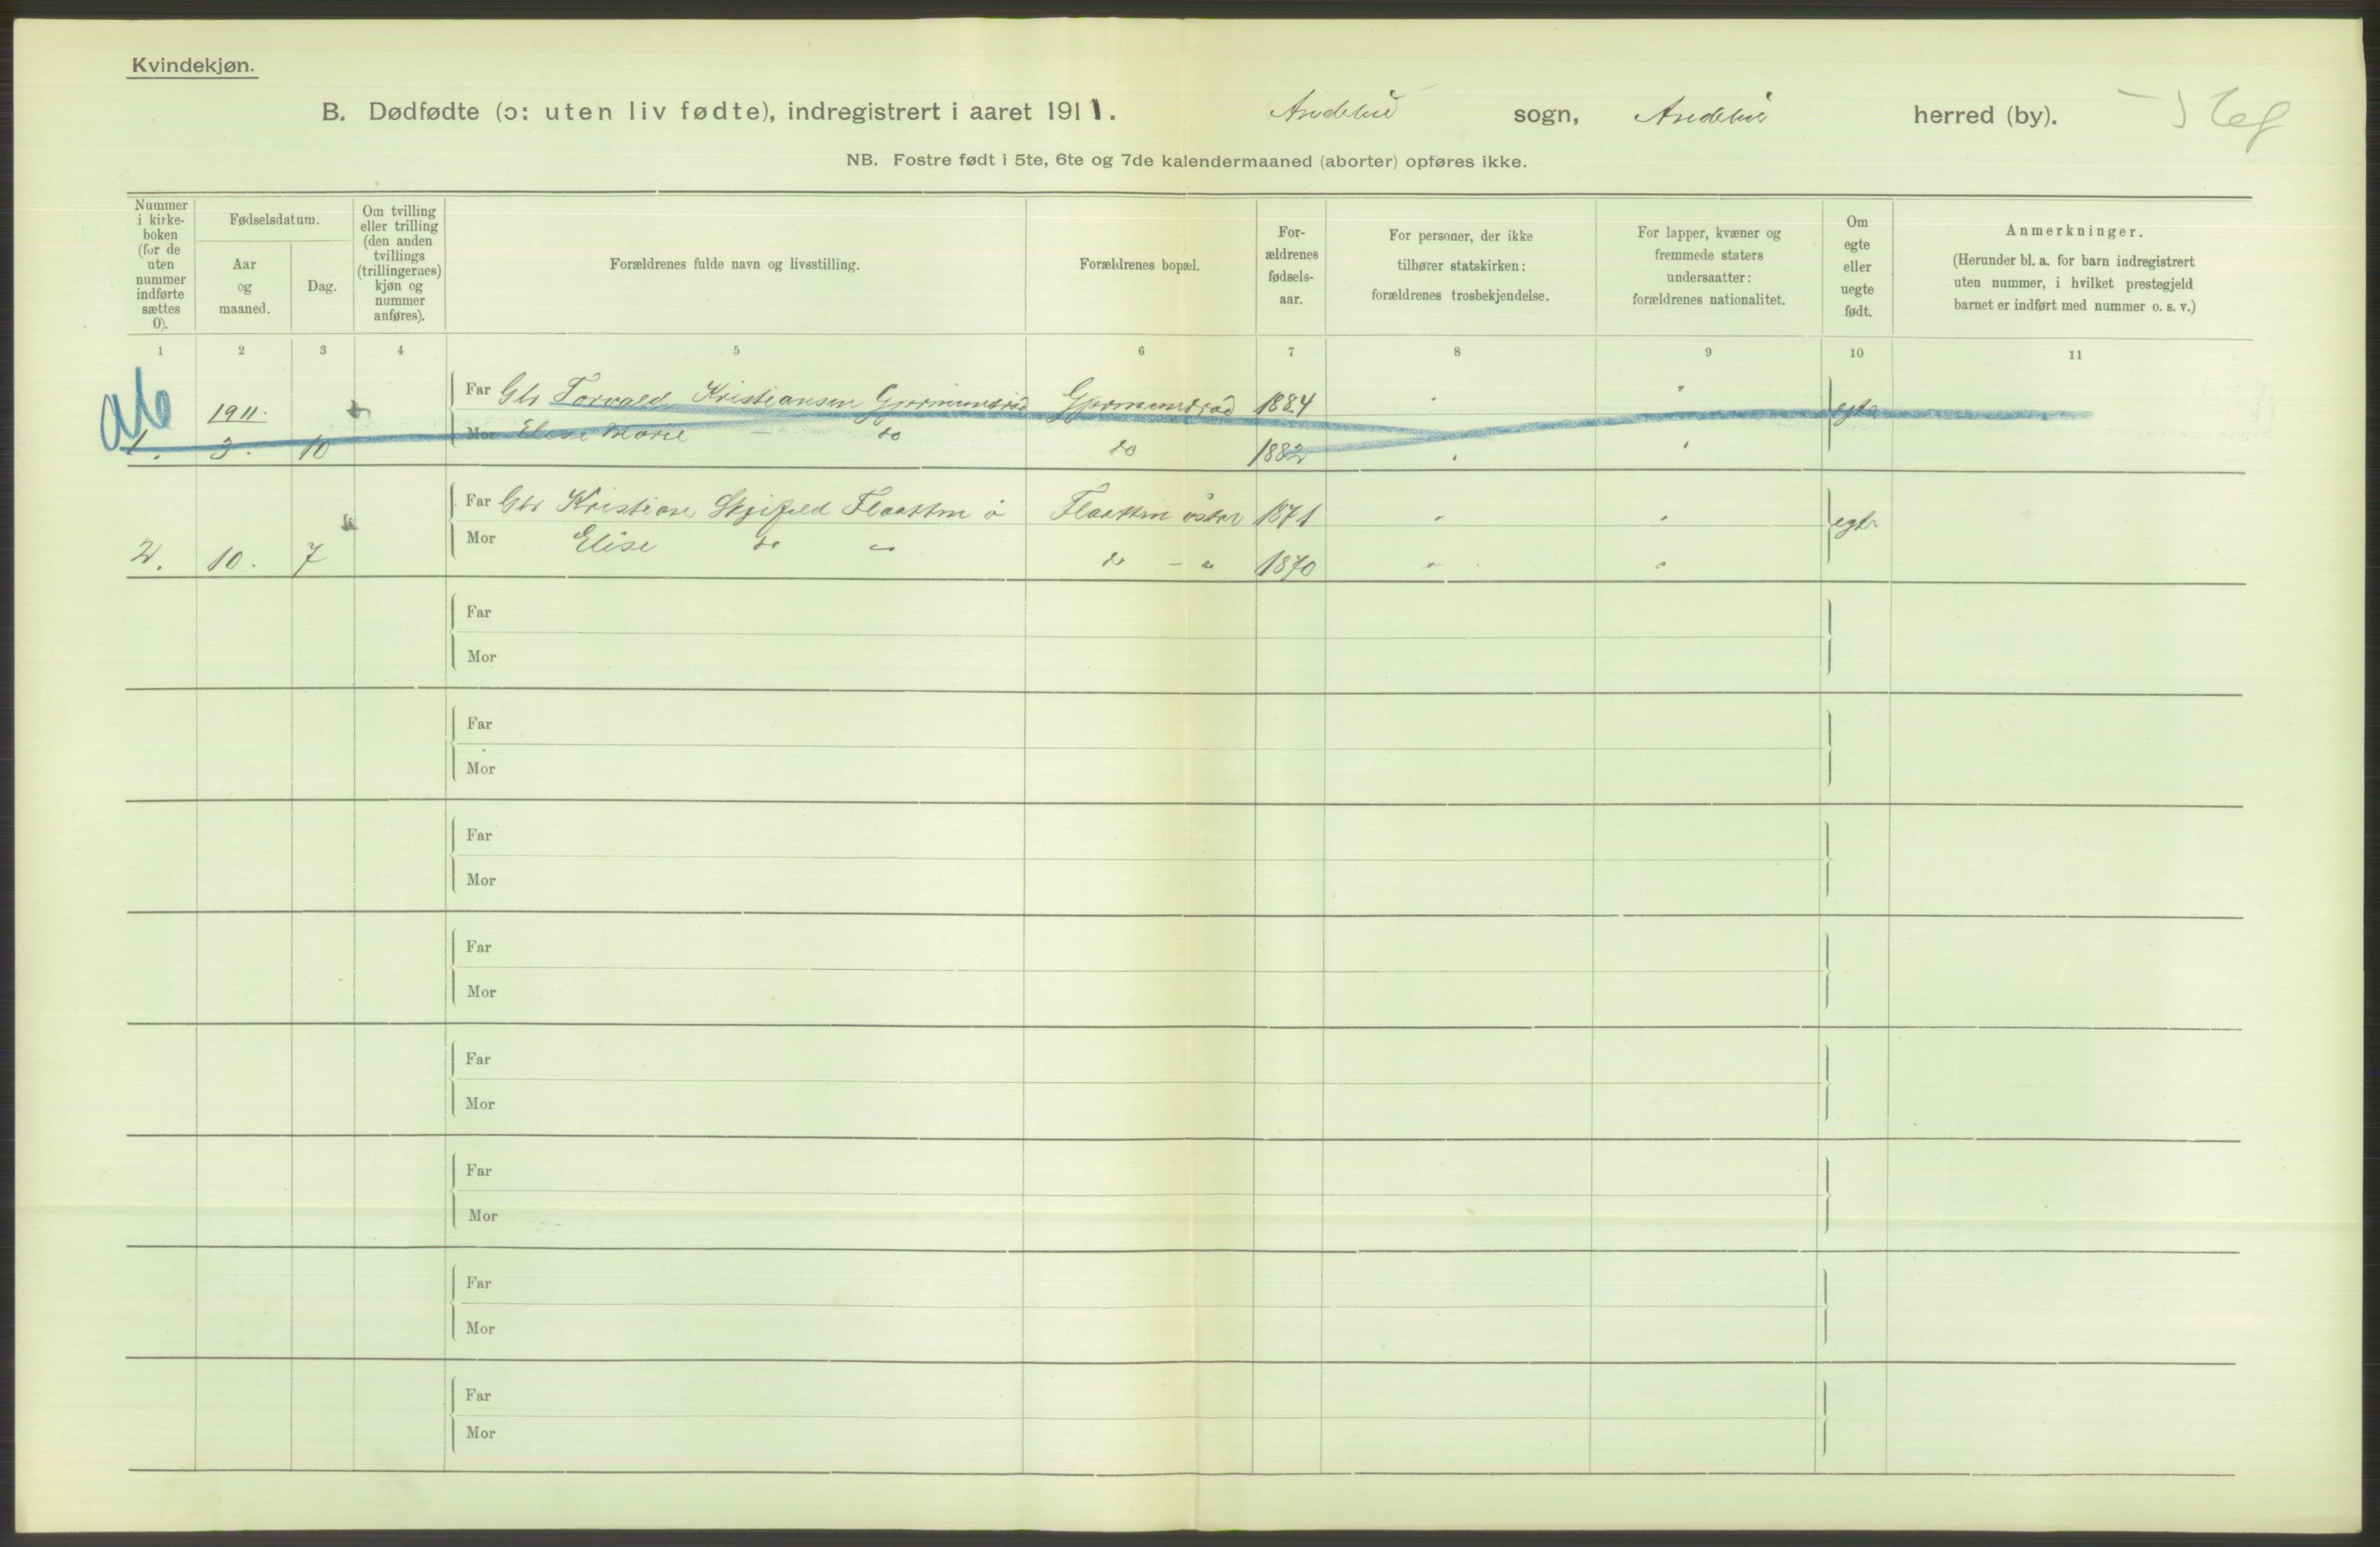 Kvindekjøn.
B. Dødfødte (ɔ: uten liv fødte), indregistrert i aaret 1911. Andebu sogn, Andebu herred (by).
NB. Fostre født i 5te, 6te og 7de kalendermaaned (aborter) opføres ikke.
Nummer i kirke-boken (for de uten nummer indførte sættes 0).
Fødselsdatum.
Aar og maaned.
Dag.
Om tvilling eller trilling (den anden tvillings (trillingernes) kjøn og nummer anføres).
Forældrenes fulde navn og livsstilling.
Forældrenes bopæl.
For-ældrenes fødsels-aar.
For personer, der ikke tilhører statskirken: forældrenes trosbekjendelse.
For lapper, kvæner og fremmede staters undersaatter: forældrenes nationalitet.
Om egte eller uegte født.
Anmerkninger.
(Herunder bl. a. for barn indregistrert uten nummer, i hvilket prestegjeld barnet er indført med nummer o. s. v.)
1 2 3 4 5 6 7 8 9 10 11
ab
1911. Far Gbr Torvald Kristiansen Gjermundrød Gjermundrød 1884 " " egte
1. 3. 10 Mor Elise Marie — do do 1882 " "
Far Gbr Kristian Skjifjeld Flaatten ø Flaatten østre 1871 " " egte
2. 10. 7 Mor Elise do " do — " 1870 " "
Far
Mor
Far
Mor
Far
Mor
Far
Mor
Far
Mor
Far
Mor
Far
Mor
Far
Mor